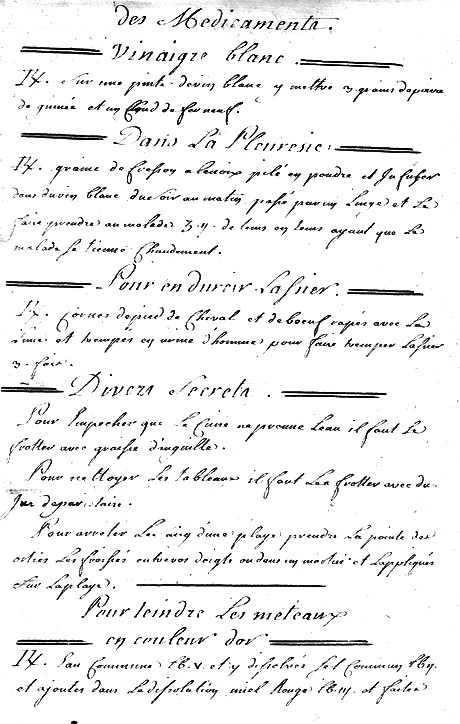 des Medicaments.
Vinaigre blanc.
Sur une pinte de vin blanc y mettre 3 grains de poivre
de guinée et un de fer neuf.
Dans La Pleuresie.
graine de Cresson a lenoix pilé en poudre et Infuser
dans du vin blanc du soir au matin passé par un Linge et Le
faire prendre au malade 3. de tems en tems ayant que Le
malade se tienne Chaudement.
Pour endurcir Lasier.
Cornes de pied de Cheval et de boeuf rapés avec La
Lime et trempes en urine d'homme pour faire tremper Lasier
3. fois.
Divers Secrets.
Pour Empecher que Le Cuire ne prenne Leau il faut Le
frotter avec graisse d'inguille.
Pour nettoyer Les tableaux il faut Les frotter avec du
Jus de parietaire.
Pour arreter Le d'une playe prendre La pointe des
orties Les froissés entre vos doigts ou dans un mortier et L'appliqués
sur La playe.
Pour teindre Les meteaux
en couleur dor
Eau Commune lb. v. et y disolvés sel Commun lb ij.
et ajoutes dans La disolution miel Rouge lb. ij. et faites